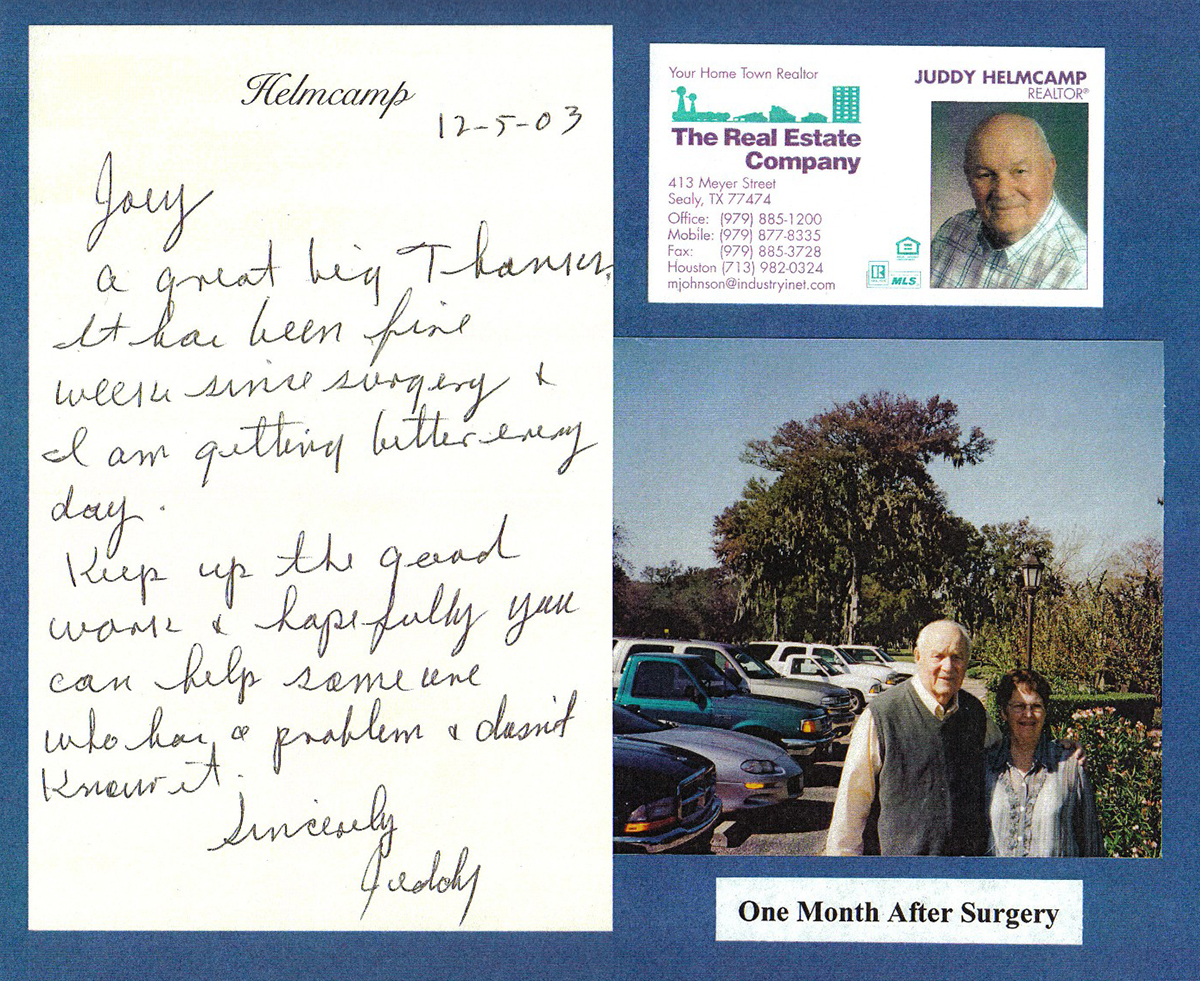 Helmcamp
12-5-03
Joey
a great big Thanks.
It has been five
weeks since surgery &
I am getting better every
day.
Keep up the good
work & hopefully you
can help someone
who has a problem & doesn't
know it.
Sincerely
Juddy
Your Home Town Realtor
The Real Estate
Company
413 Meyer Street
Sealy, TX 77474
Office: (979) 885-1200
Mobile: (979) 877-8335
Fax: (979) 885-3728
Houston (713) 982-0324
mjohnson@industryinet.com
JUDDY HELMCAMP
REALTOR®
R MLS
One Month After Surgery